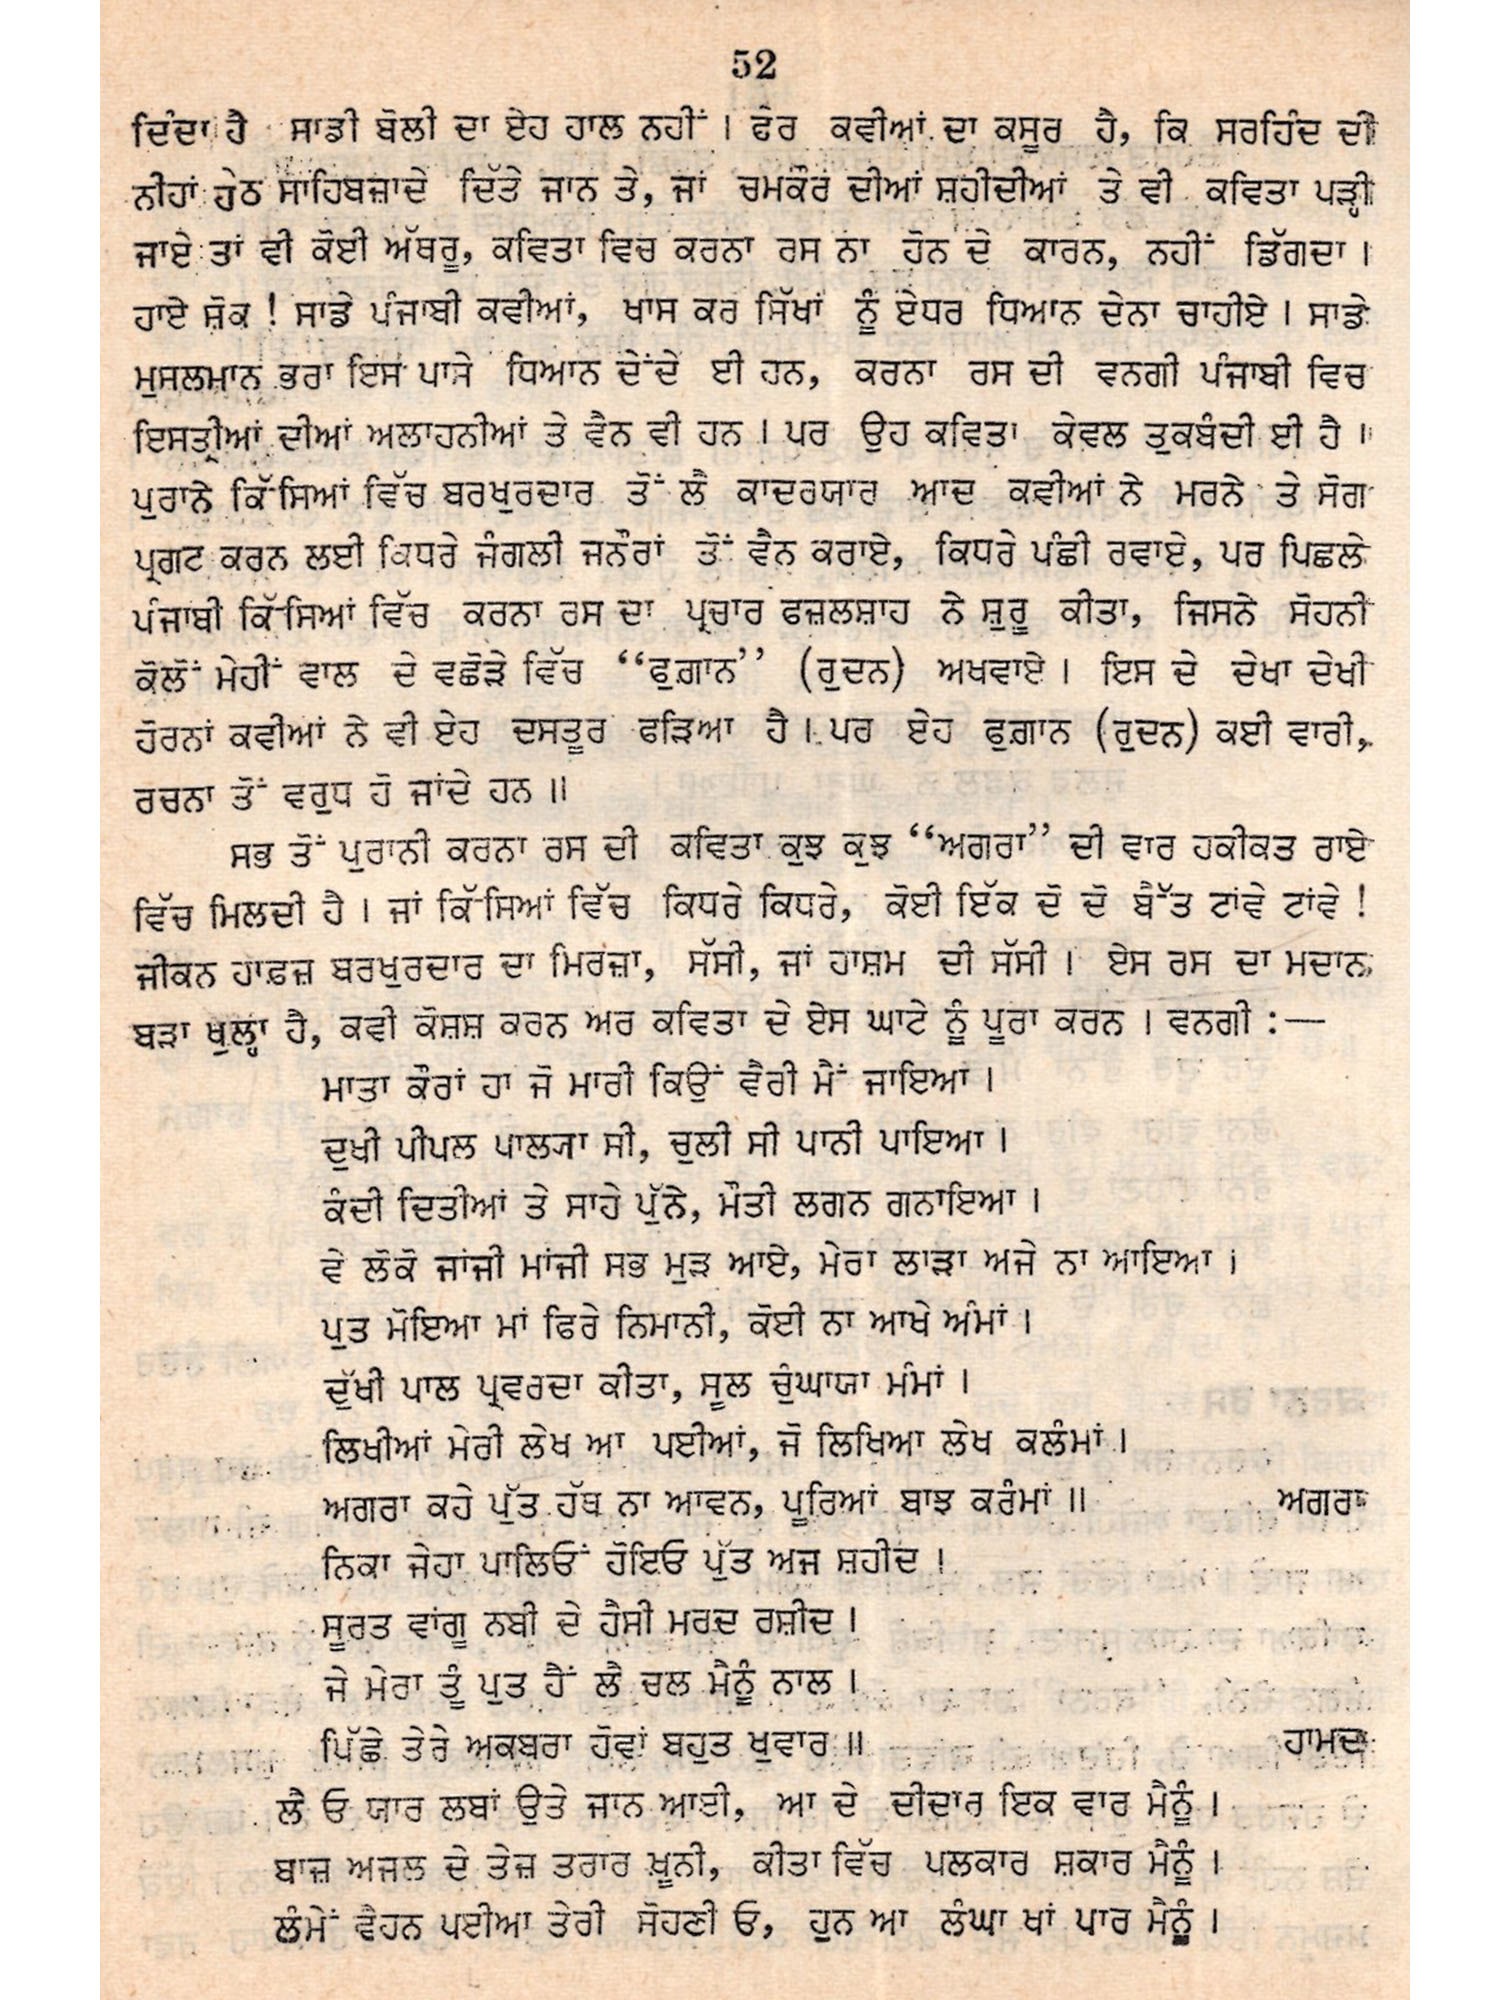 52
ਦਿੰਦਾ ਹੈ ਸਾਡੀ ਬੋਲੀ ਦਾ ਏਹ ਹਾਲ ਨਹੀਂ । ਫੇਰ ਕਵੀਆਂ ਦਾ ਕਸੂਰ ਹੈ, ਕਿ ਸਰਹਿੰਦ ਦੀ
ਨੀਹਾਂ ਹੇਠ ਸਾਹਿਬਜ਼ਾਦੇ ਦਿੱਤੇ ਜਾਨ ਤੇ, ਜਾਂ ਚਮਕੌਰ ਦੀਆਂ ਸ਼ਹੀਦੀਆਂ ਤੇ ਵੀ ਕਵਿਤਾ ਪੜ੍ਹੀ
ਜਾਏ ਤਾਂ ਵੀ ਕੋਈ ਅੱਥਰੂ, ਕਵਿਤਾ ਵਿਚ ਕਰਨਾ ਰਸ ਨਾ ਹੋਨ ਦੇ ਕਾਰਨ, ਨਹੀਂ ਡਿੱਗਦਾ ।
ਹਾਏ ਸ਼ੋਕ ! ਸਾਡੇ ਪੰਜਾਬੀ ਕਵੀਆਂ, ਖਾਸ ਕਰ ਸਿੱਖਾਂ ਨੂੰ ਏਧਰ ਧਿਆਨ ਦੇਨਾ ਚਾਹੀਏ । ਸਾਡੇ
ਮੁਸਲਮਾਨ ਭਰਾ ਇਸ ਪਾਸੇ ਧਿਆਨ ਦੇਂਦੇ ਈ ਹਨ, ਕਰਨਾ ਰਸ ਦੀ ਵਨਗੀ ਪੰਜਾਬੀ ਵਿਚ
ਇਸਤ੍ਰੀਆਂ ਦੀਆਂ ਅਲਾਹਨੀਆਂ ਤੇ ਵੈਨ ਵੀ ਹਨ । ਪਰ ਉਹ ਕਵਿਤਾ ਕੇਵਲ ਤੁਕਬੰਦੀ ਈ ਹੈ ।
ਪੁਰਾਨੇ ਕਿੱਸਿਆਂ ਵਿੱਚ ਬਰਖੁਰਦਾਰ ਤੋਂ ਲੈ ਕਾਦਰਯਾਰ ਆਦ ਕਵੀਆਂ ਨੇ ਮਰਨੇ ਤੇ ਸੋਗ
ਪ੍ਰਗਟ ਕਰਨ ਲਈ ਕਿਧਰੇ ਜੰਗਲੀ ਜਨੌਰਾਂ ਤੋਂ ਵੈਨ ਕਰਾਏ, ਕਿਧਰੇ ਪੰਛੀ ਰਵਾਏ, ਪਰ ਪਿਛਲੇ
ਪੰਜਾਬੀ ਕਿੱਸਿਆਂ ਵਿੱਚ ਕਰਨਾ ਰਸ ਦਾ ਪ੍ਰਚਾਰ ਫਜ਼ਲਸ਼ਾਹ ਨੇ ਸ਼ੁਰੂ ਕੀਤਾ, ਜਿਸਨੇ ਸੋਹਨੀ
ਕੋਲੋਂ ਮੇਹੀਂ ਵਾਲ ਦੇ ਵਛੋੜੇ ਵਿੱਚ “ਫੁਗ਼ਾਨ” (ਰੁਦਨ) ਅਖਵਾਏ । ਇਸ ਦੇ ਦੇਖਾ ਦੇਖੀ
ਹੋਰਨਾਂ ਕਵੀਆਂ ਨੇ ਵੀ ਏਹ ਦਸਤੂਰ ਫੜਿਆ ਹੈ । ਪਰ ਏਹ ਫੁਗ਼ਾਨ (ਰੁਦਨ) ਕਈ ਵਾਰੀ,
ਰਚਨਾ ਤੋਂ ਵਰੁਧ ਹੋ ਜਾਂਦੇ ਹਨ ॥
ਸਭ ਤੋਂ ਪੁਰਾਨੀ ਕਰਨਾ ਰਸ ਦੀ ਕਵਿਤਾ ਕੁਝ ਕੁਝ “ਅਗਰਾ” ਦੀ ਵਾਰ ਹਕੀਕਤ ਰਾਏ
ਵਿੱਚ ਮਿਲਦੀ ਹੈ । ਜਾਂ ਕਿੱਸਿਆਂ ਵਿੱਚ ਕਿਧਰੇ ਕਿਧਰੇ, ਕੋਈ ਇੱਕ ਦੋ ਦੋ ਬੈੱਤ ਟਾਂਵੇ ਟਾਂਵੇ !
ਜੀਕਨ ਹਾਫ਼ਜ਼ ਬਰਖੁਰਦਾਰ ਦਾ ਮਿਰਜ਼ਾ, ਸੱਸੀ, ਜਾਂ ਹਾਸ਼ਮ ਦੀ ਸੱਸੀ । ਏਸ ਰਸ ਦਾ ਮਦਾਨ
ਬੜਾ ਖੁਲ੍ਹਾ ਹੈ, ਕਵੀ ਕੋਸ਼ਸ਼ ਕਰਨ ਅਰ ਕਵਿਤਾ ਦੇ ਏਸ ਘਾਟੇ ਨੂੰ ਪੂਰਾ ਕਰਨ । ਵਨਗੀ :—
ਮਾਤਾ ਕੌਰਾਂ ਹਾ ਜੋ ਮਾਰੀ ਕਿਉਂ ਵੈਰੀ ਮੈਂ ਜਾਇਆਂ ।
ਦੁਖੀ ਪੀਪਲ ਪਾਲ੍ਯਾ ਸੀ, ਚੁਲੀ ਸੀ ਪਾਨੀ ਪਾਇਆ ।
ਕੰਦੀ ਦਿਤੀਆਂ ਤੇ ਸਾਹੇ ਪੁੱਨੇ, ਮੌਤੀ ਲਗਨ ਗਨਾਇਆ ।
ਵੇ ਲੋਕੋ ਜਾਂਜੀ ਮਾਂਜੀ ਸਭ ਮੁੜ ਆਏ, ਮੇਰਾ ਲਾੜਾ ਅਜੇ ਨਾ ਆਇਆ ।
ਪੁਤ ਮੋਇਆ ਮਾਂ ਫਿਰੇ ਨਿਮਾਨੀ, ਕੋਈ ਨਾ ਆਖੇ ਅੰਮਾਂ ।
ਦੁੱਖੀ ਪਾਲ ਪ੍ਰਵਰਦਾ ਕੀਤਾ, ਸੂਲ ਚੁੰਘਾਯਾ ਮੰਮਾਂ ।
ਲਿਖੀਆਂ ਮੇਰੀ ਲੇਖ ਆ ਪਈਆਂ, ਜੋ ਲਿਖਿਆ ਲੇਖ ਕਲੰਮਾਂ ।
ਅਗਰਾ ਕਹੇ ਪੁੱਤ ਹੱਥ ਨਾ ਆਵਨ, ਪੂਰਿਆਂ ਬਾਝ ਕਰੰਮਾਂ ॥ ਅਗਰਾ
ਨਿਕਾ ਜੇਹਾ ਪਾਲਿਓਂ ਹੋਇਓ ਪੁੱਤ ਅਜ ਸ਼ਹੀਦ ।
ਸੂਰਤ ਵਾਂਗੂ ਨਬੀ ਦੇ ਹੈਸੀ ਮਰਦ ਰਸ਼ੀਦ ।
ਜੇ ਮੇਰਾ ਤੂੰ ਪੁਤ ਹੈਂ ਲੈ ਚਲ ਮੈਨੂੰ ਨਾਲ ।
ਪਿੱਛੇ ਤੇਰੇ ਅਕਬਰਾ ਹੋਵਾਂ ਬਹੁਤ ਖੁਵਾਰ ॥ ਹਾਮਦ
ਲੈ ਓ ਯਾਰ ਲਬਾਂ ਉਤੇ ਜਾਨ ਆਈ, ਆ ਦੇ ਦੀਦਾਰ ਇਕ ਵਾਰ ਮੈਨੂੰ ।
ਬਾਜ਼ ਅਜਲ ਦੇ ਤੇਜ਼ ਤਰਾਰ ਖ਼ੂਨੀ, ਕੀਤਾ ਵਿੱਚ ਪਲਕਾਰ ਸ਼ਕਾਰ ਮੈਨੂੰ ।
ਲੰਮੇਂ ਵੈਹਨ ਪਈਆ ਤੇਰੀ ਸੋਹਣੀ ਓ, ਹੁਨ ਆ ਲੰਘਾ ਖਾਂ ਪਾਰ ਮੈਨੂੰ ।